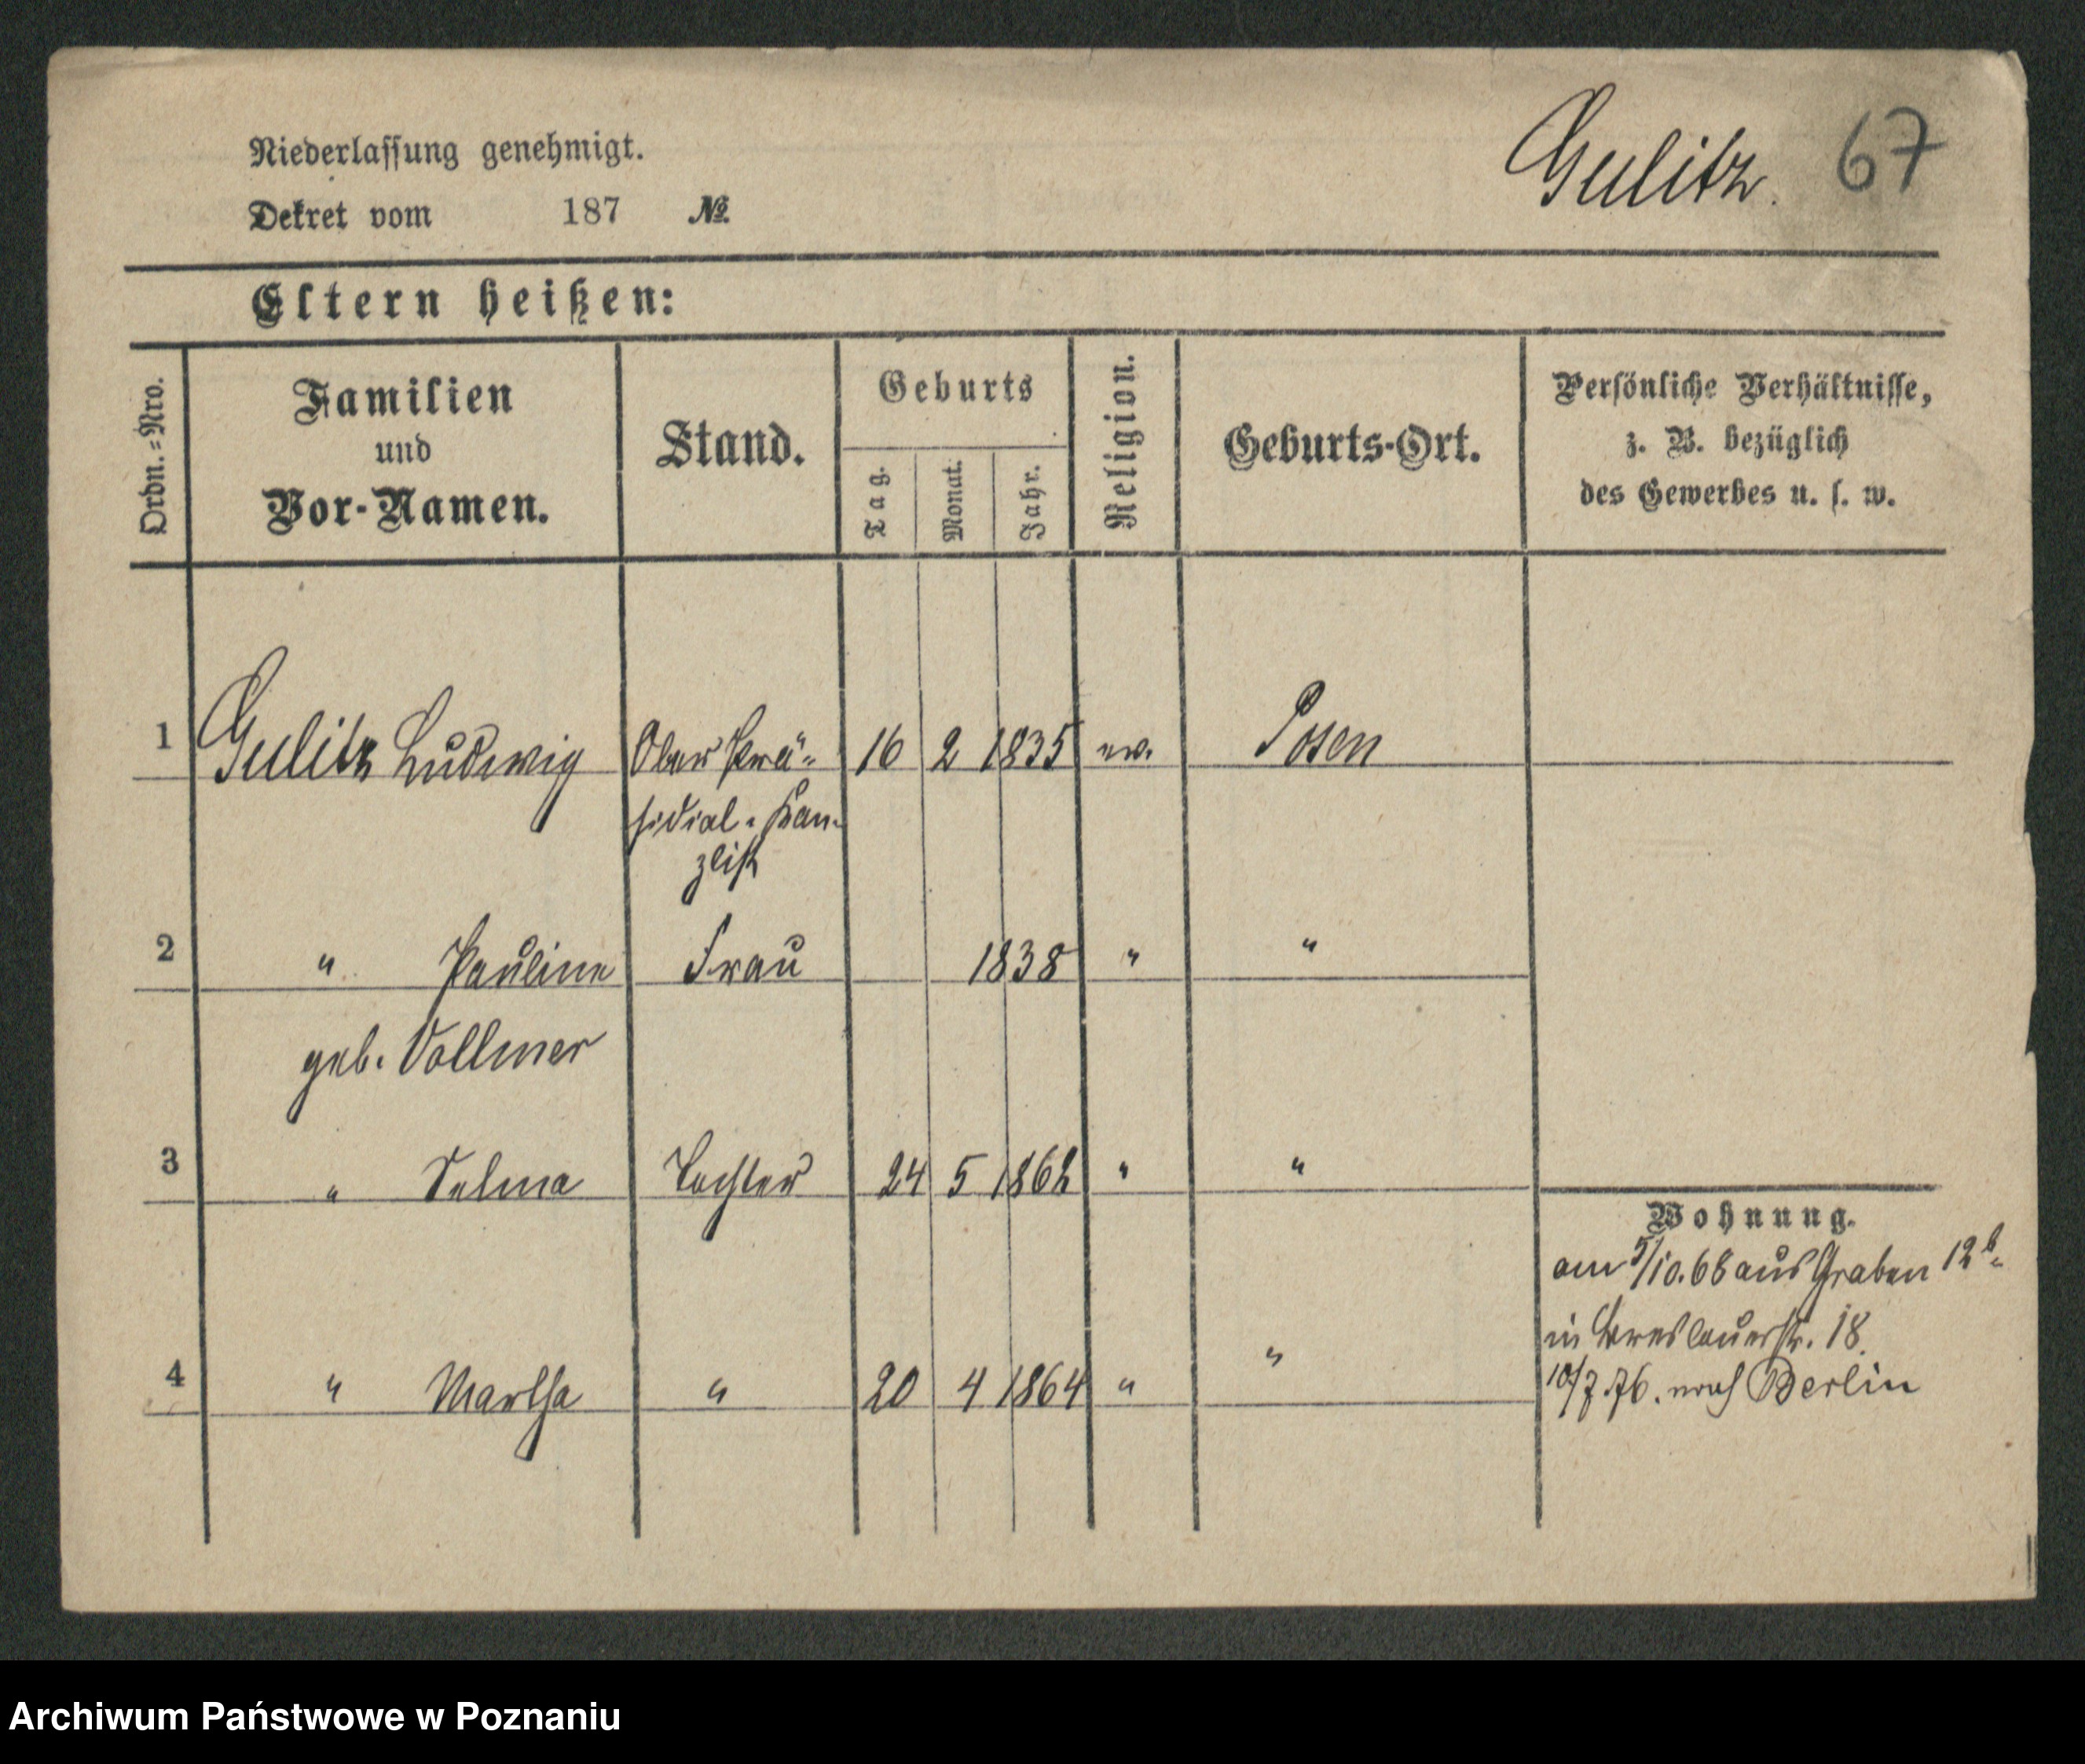 Niederlassung genehmigt.
Gulitz. 67
Dekret vom 187 №
Eltern heißen:
Ordn.=Nro.
Familien
und
Vor-Namen.
Stand.
Geburts
Tag.
Monat.
Jahr.
Religion.
Geburts-Ort.
Persönliche Verhältnisse,
z. B. bezüglich
des Gewerbes u. s. w.
1 Gulitz Ludwig Ober Prä= 16 2 1835 ev. Posen
sidial-Kan-
zlist
2 " Pauline Frau 1838 " "
geb. Vollmer
3 " Selma Tochter 24 5 1862 " "
Wohnung.
am 5/10.68 aus Graben 12b.
in Breslauerstr. 18.
4 " Martha " 20 4 1864 " "
10/7.76. nach Berlin
Archiwum Państwowe w Poznaniu